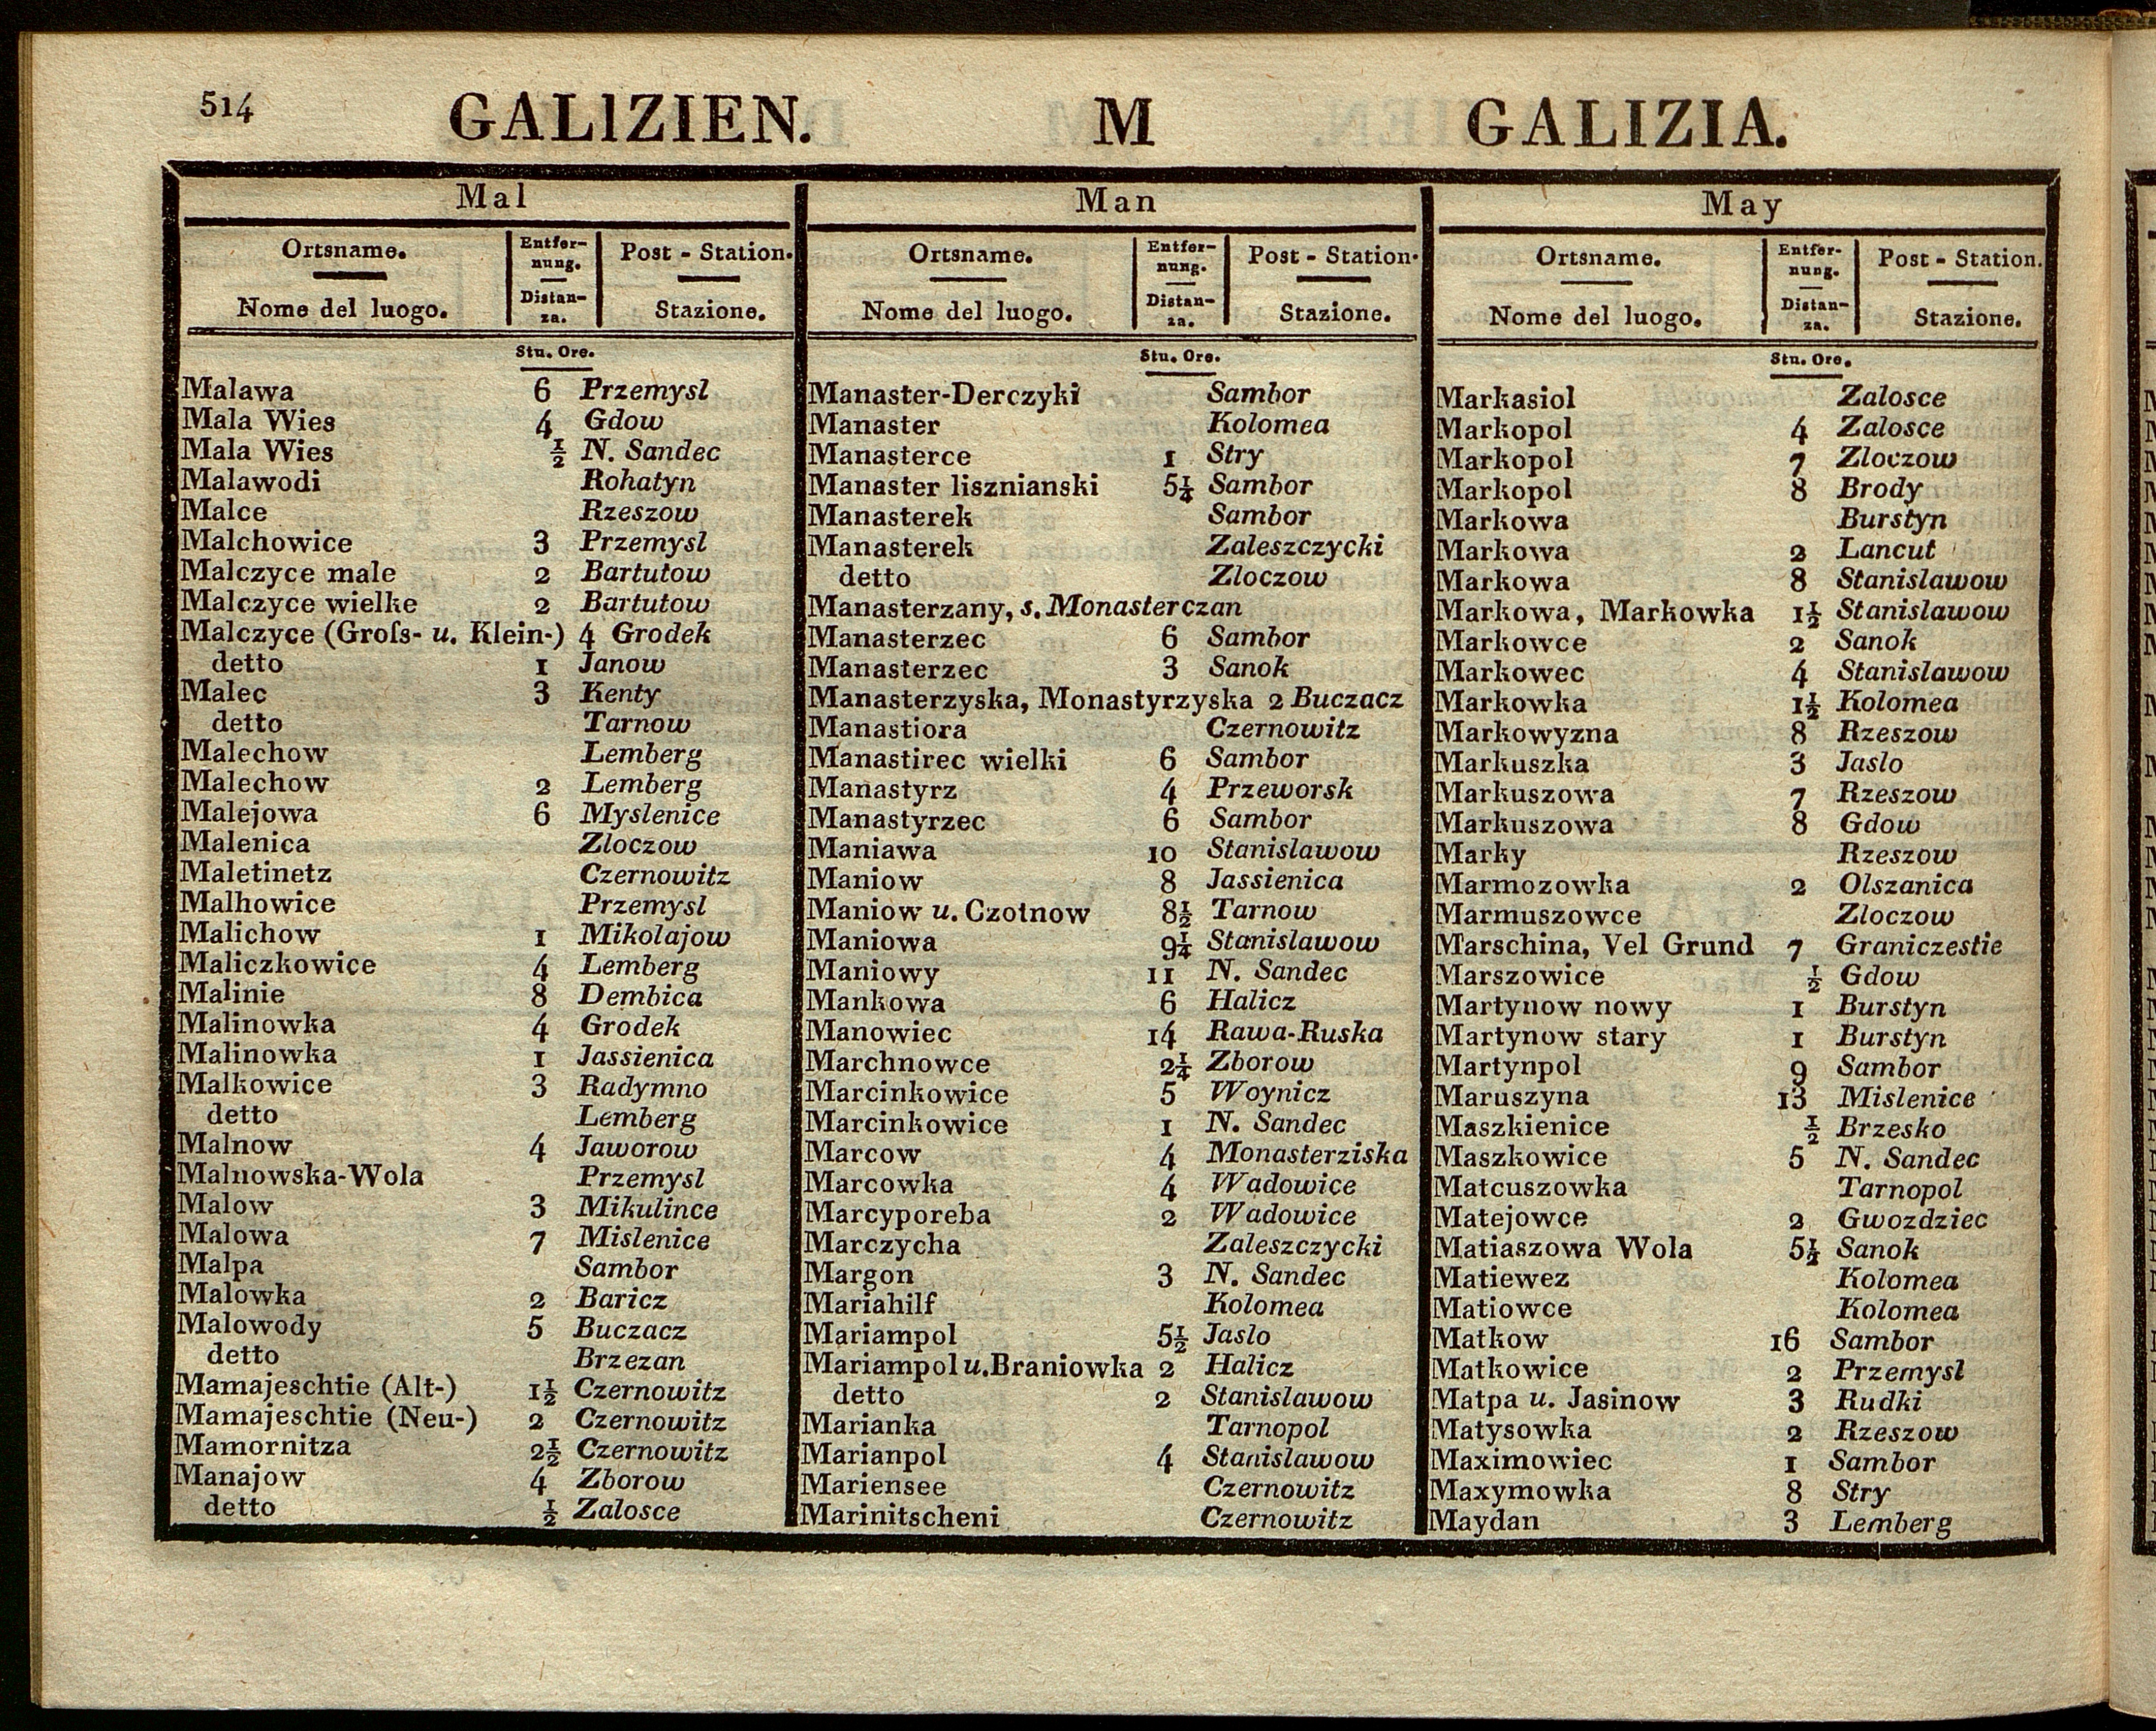 514 GALIZIEN. M GALIZIA.
Mal
Ortsname. Entfer-nung. Post - Station.
Nome del luogo. Distan-za. Stazione.
Stu. Ore.
Malawa 6 Przemysl
Mala Wies 4 Gdow
Mala Wies ½ N. Sandec
Malawodi Rohatyn
Malce Rzeszow
Malchowice 3 Przemysl
Malczyce male 2 Bartutow
Malczyce wielke 2 Bartutow
Malczyce (Groſs- u. Klein-) 4 Grodek
detto 1 Janow
Malec 3 Kenty
detto Tarnow
Malechow Lemberg
Malechow 2 Lemberg
Malejowa 6 Myslenice
Malenica Zloczow
Maletinetz Czernowitz
Malhowice Przemysl
Malichow 1 Mikolajow
Maliczkowice 4 Lemberg
Malinie 8 Dembica
Malinowka 4 Grodek
Malinowka 1 Jassienica
Malkowice 3 Radymno
detto Lemberg
Malnow 4 Jaworow
Malnowska-Wola Przemysl
Malow 3 Mikulince
Malowa 7 Mislenice
Malpa Sambor
Malowka 2 Baricz
Malowody 5 Buczacz
detto Brzezan
Mamajeschtie (Alt-) 1½ Czernowitz
Mamajeschtie (Neu-) 2 Czernowitz
Mamornitza 2½ Czernowitz
Manajow 4 Zborow
detto ½ Zalosce
Man
Ortsname. Entfer-nung. Post - Station.
Nome del luogo. Distan-za. Stazione.
Stu. Ore.
Manaster-Derczyki Sambor
Manaster Kolomea
Manasterce 1 Stry
Manaster lisznianski 5¼ Sambor
Manasterek Sambor
Manasterek Zaleszczycki
detto Zloczow
Manasterzany, s. Monasterczan
Manasterzec 6 Sambor
Manasterzec 3 Sanok
Manasterzyska, Monastyrzyska 2 Buczacz
Manastiora Czernowitz
Manastirec wielki 6 Sambor
Manastyrz 4 Przeworsk
Manastyrzec 6 Sambor
Maniawa 10 Stanislawow
Maniow 8 Jassienica
Maniow u. Czotnow 8½ Tarnow
Maniowa 9¼ Stanislawow
Maniowy 11 N. Sandec
Mankowa 6 Halicz
Manowiec 14 Rawa-Ruska
Marchnowce 2¼ Zborow
Marcinkowice 5 Woynicz
Marcinkowice 1 N. Sandec
Marcow 4 Monasterziska
Marcowka 4 Wadowice
Marcyporeba 2 Wadowice
Marczycha Zaleszczycki
Margon 3 N. Sandec
Mariahilf Kolomea
Mariampol 5½ Jaslo
Mariampol u. Braniowka 2 Halicz
detto 2 Stanislawow
Marianka Tarnopol
Marianpol 4 Stanislawow
Mariensee Czernowitz
Marinitscheni Czernowitz
May
Ortsname. Entfer-nung. Post - Station.
Nome del luogo. Distan-za. Stazione.
Stu. Ore.
Markasiol Zalosce
Markopol 4 Zalosce
Markopol 7 Zloczow
Markopol 8 Brody
Markowa Burstyn
Markowa 2 Lancut
Markowa 8 Stanislawow
Markowa, Markowka 1½ Stanislawow
Markowce 2 Sanok
Markowec 4 Stanislawow
Markowka 1½ Kolomea
Markowyzna 8 Rzeszow
Markuszka 3 Jaslo
Markuszowa 7 Rzeszow
Markuszowa 8 Gdow
Marky Rzeszow
Marmozowka 2 Olszanica
Marmuszowce Zloczow
Marschina, Vel Grund 7 Graniczestie
Marszowice ½ Gdow
Martynow nowy 1 Burstyn
Martynow stary 1 Burstyn
Martynpol 9 Sambor
Maruszyna 13 Mislenice
Maszkienice ½ Brzesko
Maszkowice 5 N. Sandec
Matcuszowka Tarnopol
Matejowce 2 Gwozdziec
Matiaszowa Wola 5½ Sanok
Matiewez Kolomea
Matiowce Kolomea
Matkow 16 Sambor
Matkowice 2 Przemysl
Matpa u. Jasinow 3 Rudki
Matysowka 2 Rzeszow
Maximowiec 1 Sambor
Maxymowka 8 Stry
Maydan 3 Lemberg